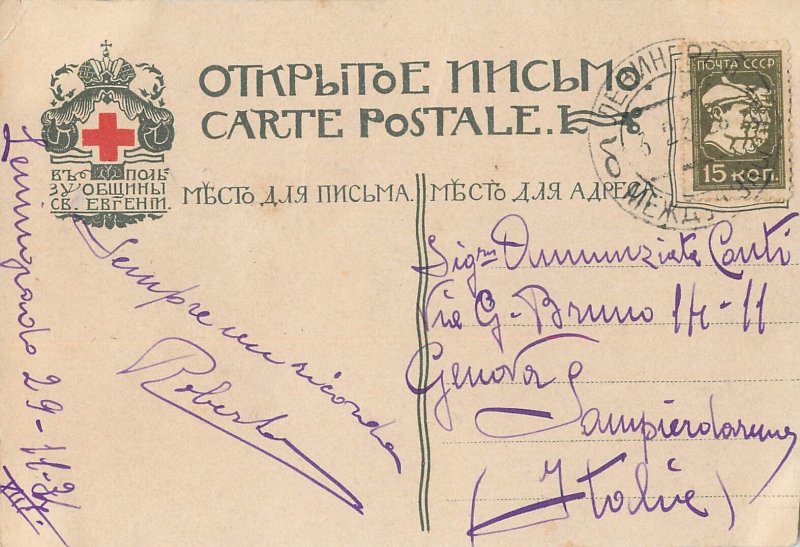 ОТКРЫТОЕ ПИСЬМО.
CARTE POSTALE.
ВЪ ПОЛЬ
ЗУ ОБЩИНЫ
СВ. ЕВГЕНІИ.
МѢСТО ДЛЯ ПИСЬМА.
МѢСТО ДЛЯ АДРЕСА.
ПОЧТА СССР
15 КОП.
ЛЕНИНГРАД
МЕЖД
Leningrado 29-11-31.
Sempre un ricordo
Roberto
Sigra Annunziata Conti
Via G. Bruno 14-11
Genova
Sampierdarena
(Italie)